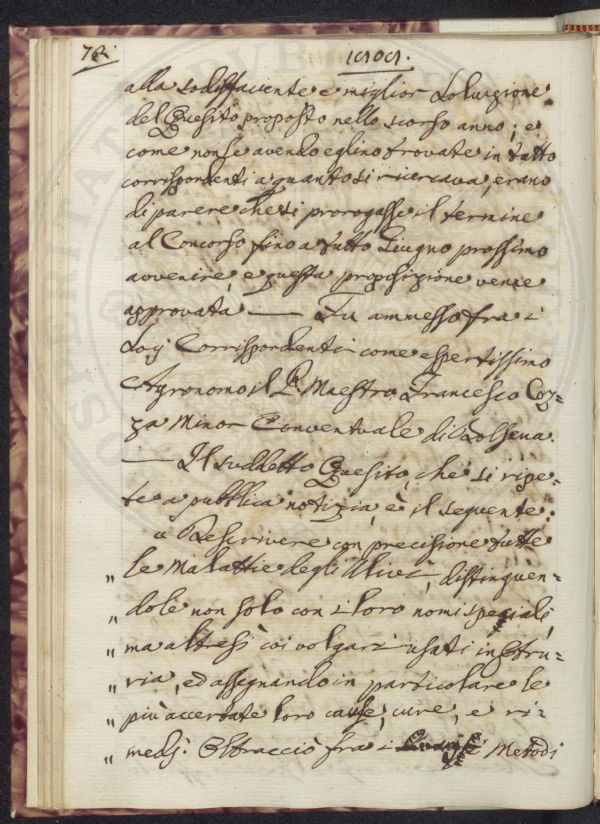 78.
alla sodisfaciente e miglior soluzione
del Quesito proposto nello scorso anno; e
come non se avendo eglino trovate in tutto
corrispondenti a quanto si ricercava, erano
di parere che si prorogasse il termine
al Concorso fino a tutto Giugno prossimo
avvenire, e questa proposizione venne
approvata — Fu ammesso fra i
Socj Corrispondenti come espertissimo
Agronomo il P. Maestro Francesco Coz=
za Minor Conventuale di Bolsena.
— Il suddetto Quesito, che si ripe-
te a pubblica notizia, è il seguente:
" Descrivere con precisione tutte
" le Malattie degli Ulivi, distinguen=
" dole non solo con i loro nomi speciali,
" ma altresì coi volgari usati in Etru=
" ria, ed assegnando in particolare le
" più accertate loro cause, cure, e ri-
" medj. Oltracciò fra i Metodi